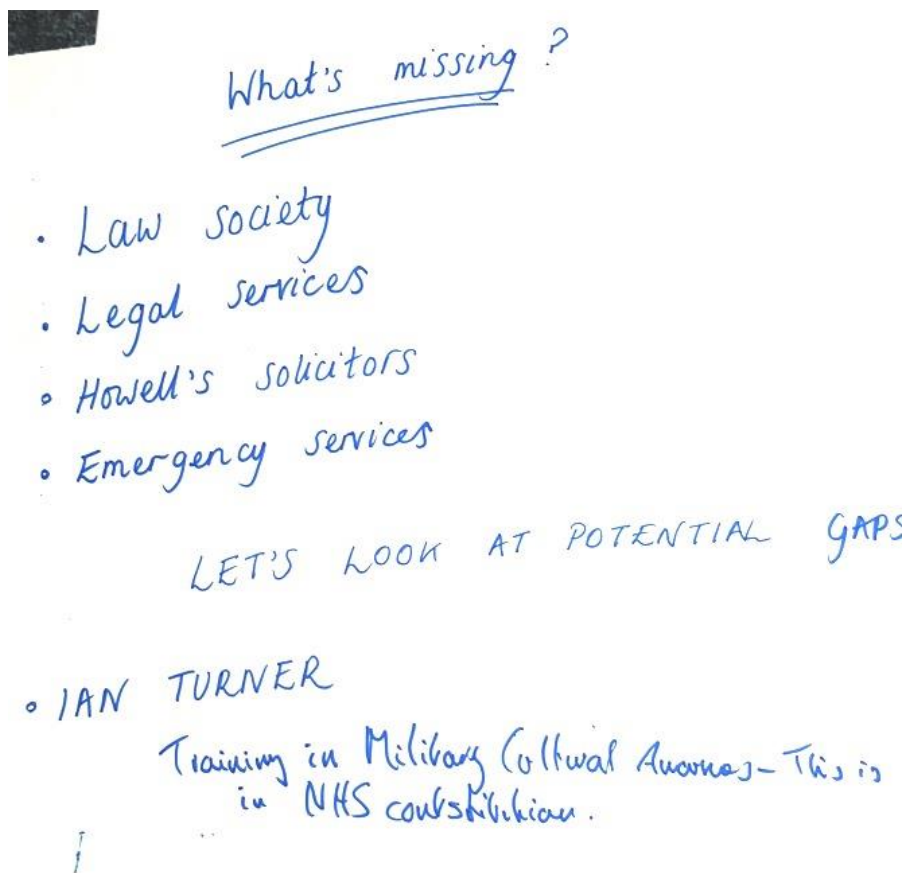 What's missing?
• Law society
• Legal services
• Howell's solicitors
• Emergency services
LET'S LOOK AT POTENTIAL GAPS
• IAN TURNER
Training in Military Cultural Awarnes - This is
in NHS constitution.